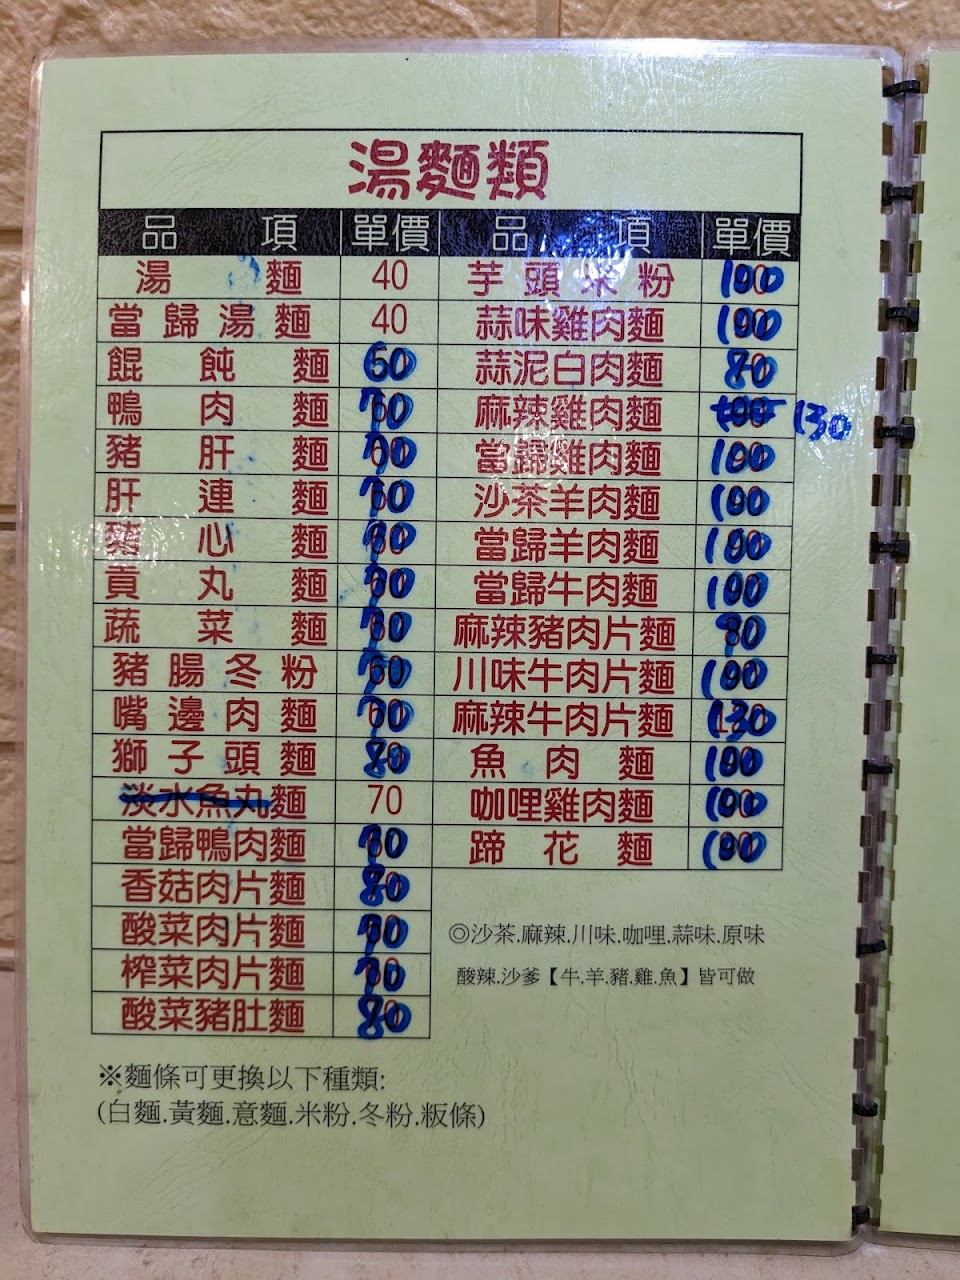 湯麵類
品項 單價 品項 單價
湯麵 40 芋頭米粉 100
當歸湯麵 40 蒜味雞肉麵 100
餛飩麵 60 蒜泥白肉麵 80
鴨肉麵 70 麻辣雞肉麵 130
豬肝麵 70 當歸雞肉麵 100
肝連麵 70 沙茶羊肉麵 100
豬心麵 當歸羊肉麵 100
貢丸麵 70 當歸牛肉麵 100
蔬菜麵 70 麻辣豬肉片麵
豬腸冬粉 70 川味牛肉片麵 100
嘴邊肉麵 70 麻辣牛肉片麵 130
獅子頭麵 80 魚肉麵 100
淡水魚丸麵 70 咖哩雞肉麵 100
當歸鴨肉麵 蹄花麵 100
香菇肉片麵 80
酸菜肉片麵
榨菜肉片麵 70
酸菜豬肚麵 80
◎沙茶.麻辣.川味.咖哩.蒜味.原味
酸辣.沙爹【牛.羊.豬.雞.魚】皆可做
※麵條可更換以下種類:
(白麵.黃麵.意麵.米粉.冬粉.粄條)